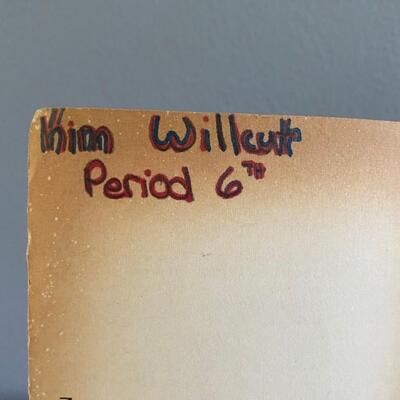 Kim Willcutt
Period 6TH